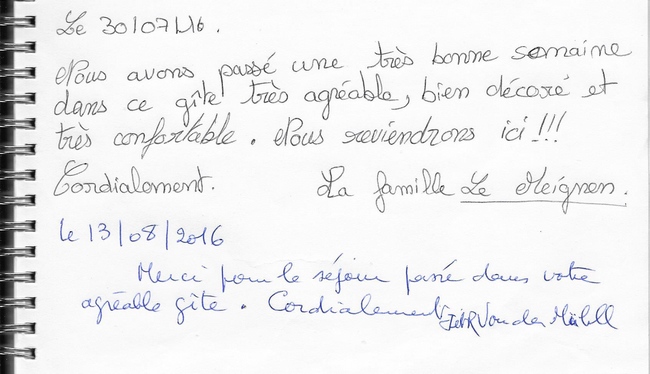 Le 30/07/16.
Nous avons passé une très bonne semaine
dans ce gîte très agréable, bien décoré et
très confortable. Nous reviendrons ici !!!
Cordialement. La famille Le Meignen.
le 13/08/2016
Merci pour le séjour passé dans votre
agréable gîte. Cordialement